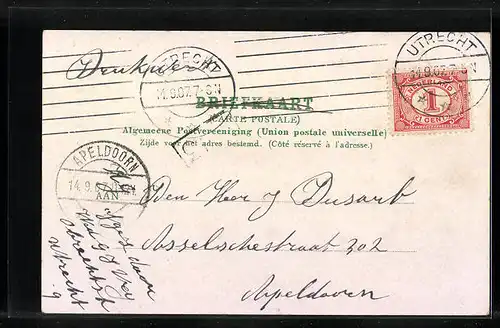 Drukwerk
UTRECHT
14.9.07.7-8N
UTRECHT
14.9.07.7-8N
NEDERLAND
1
(1 CENT)
BRIEFKAART
(CARTE POSTALE)
Algemeene Postvereeniging (Union postale universelle)
Zijde voor het adres bestemd. (Côté réservé à l'adresse.)
APELDOORN
14.9.
AAN
Den Heer J Dusarb
Asselschestraat 202
Apeldoorn
Utrecht